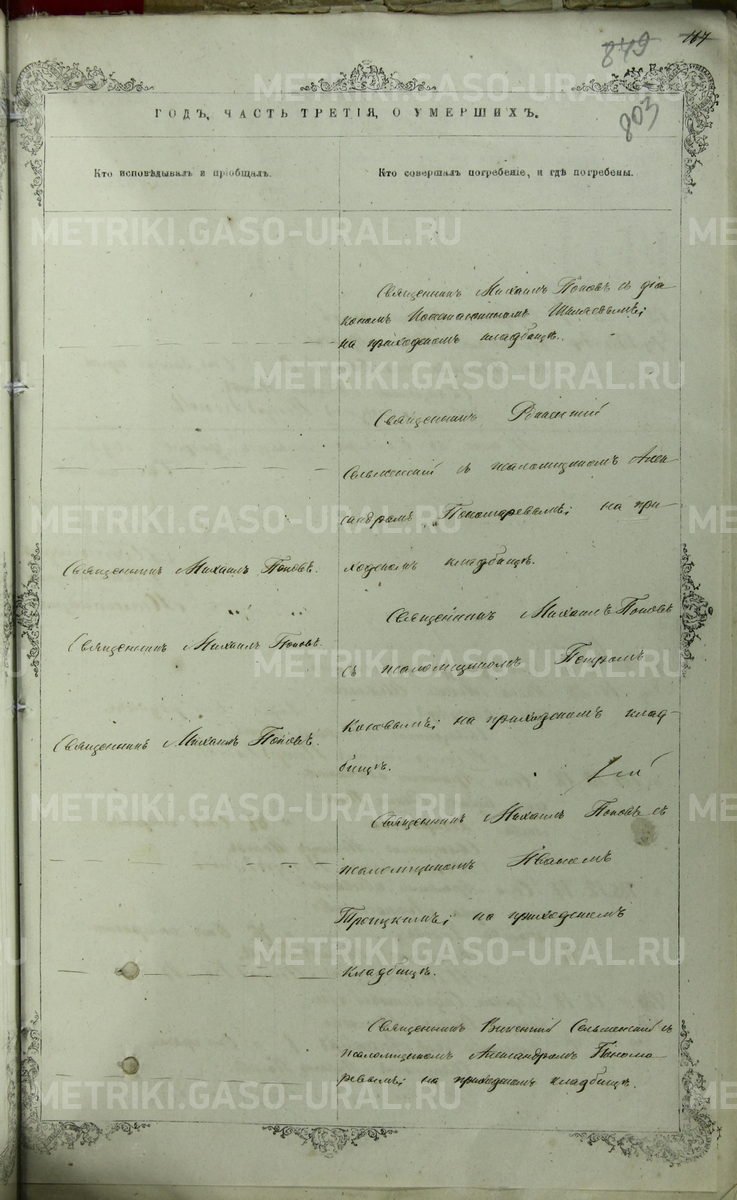 849
167
803
ГОДЪ, ЧАСТЬ ТРЕТІЯ, О УМЕРШИХЪ.
Кто исповѣдывалъ и пріобщалъ.
Кто совершалъ погребеніе, и гдѣ погребены.
Священникъ Михаилъ Поповъ съ діа
кономъ
на приходскомъ кладбищѣ.
Священникъ Викентій
Сельменскій съ псаломщикомъ Алек
сандромъ Пономаревымъ; на при
ходскомъ кладбищѣ.
Священникъ Михаилъ Поповъ
съ псаломщикомъ Петромъ
на приходскомъ клад
бищѣ.
Священникъ Михаилъ Поповъ съ
псаломщикомъ Иваномъ
Троицкимъ; на приходскомъ
кладбищѣ.
Священникъ Викентій Сельменскій съ
псаломщикомъ Александромъ Понома
ревымъ; на приходскомъ кладбищѣ.
Священникъ Михаилъ Поповъ.
Священникъ Михаилъ Поповъ.
Священникъ Михаилъ Поповъ.
METRIKI.GASO-URAL.RU